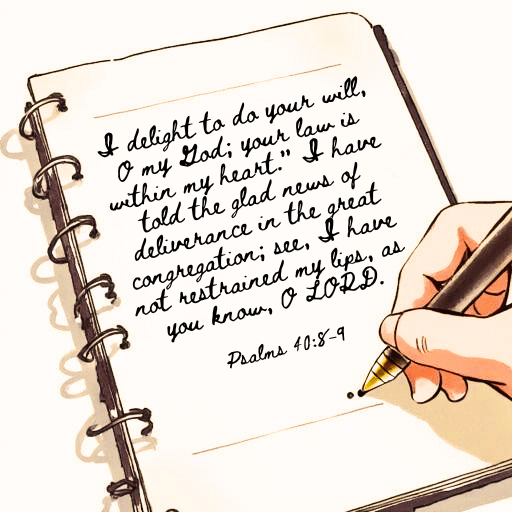 I delight to do your will,
O my God; your law is
within my heart." I have
told the glad news of
deliverance in the great
congregation; see, I have
not restrained my lips, as
you know, O LORD.
Psalms 40:8-9